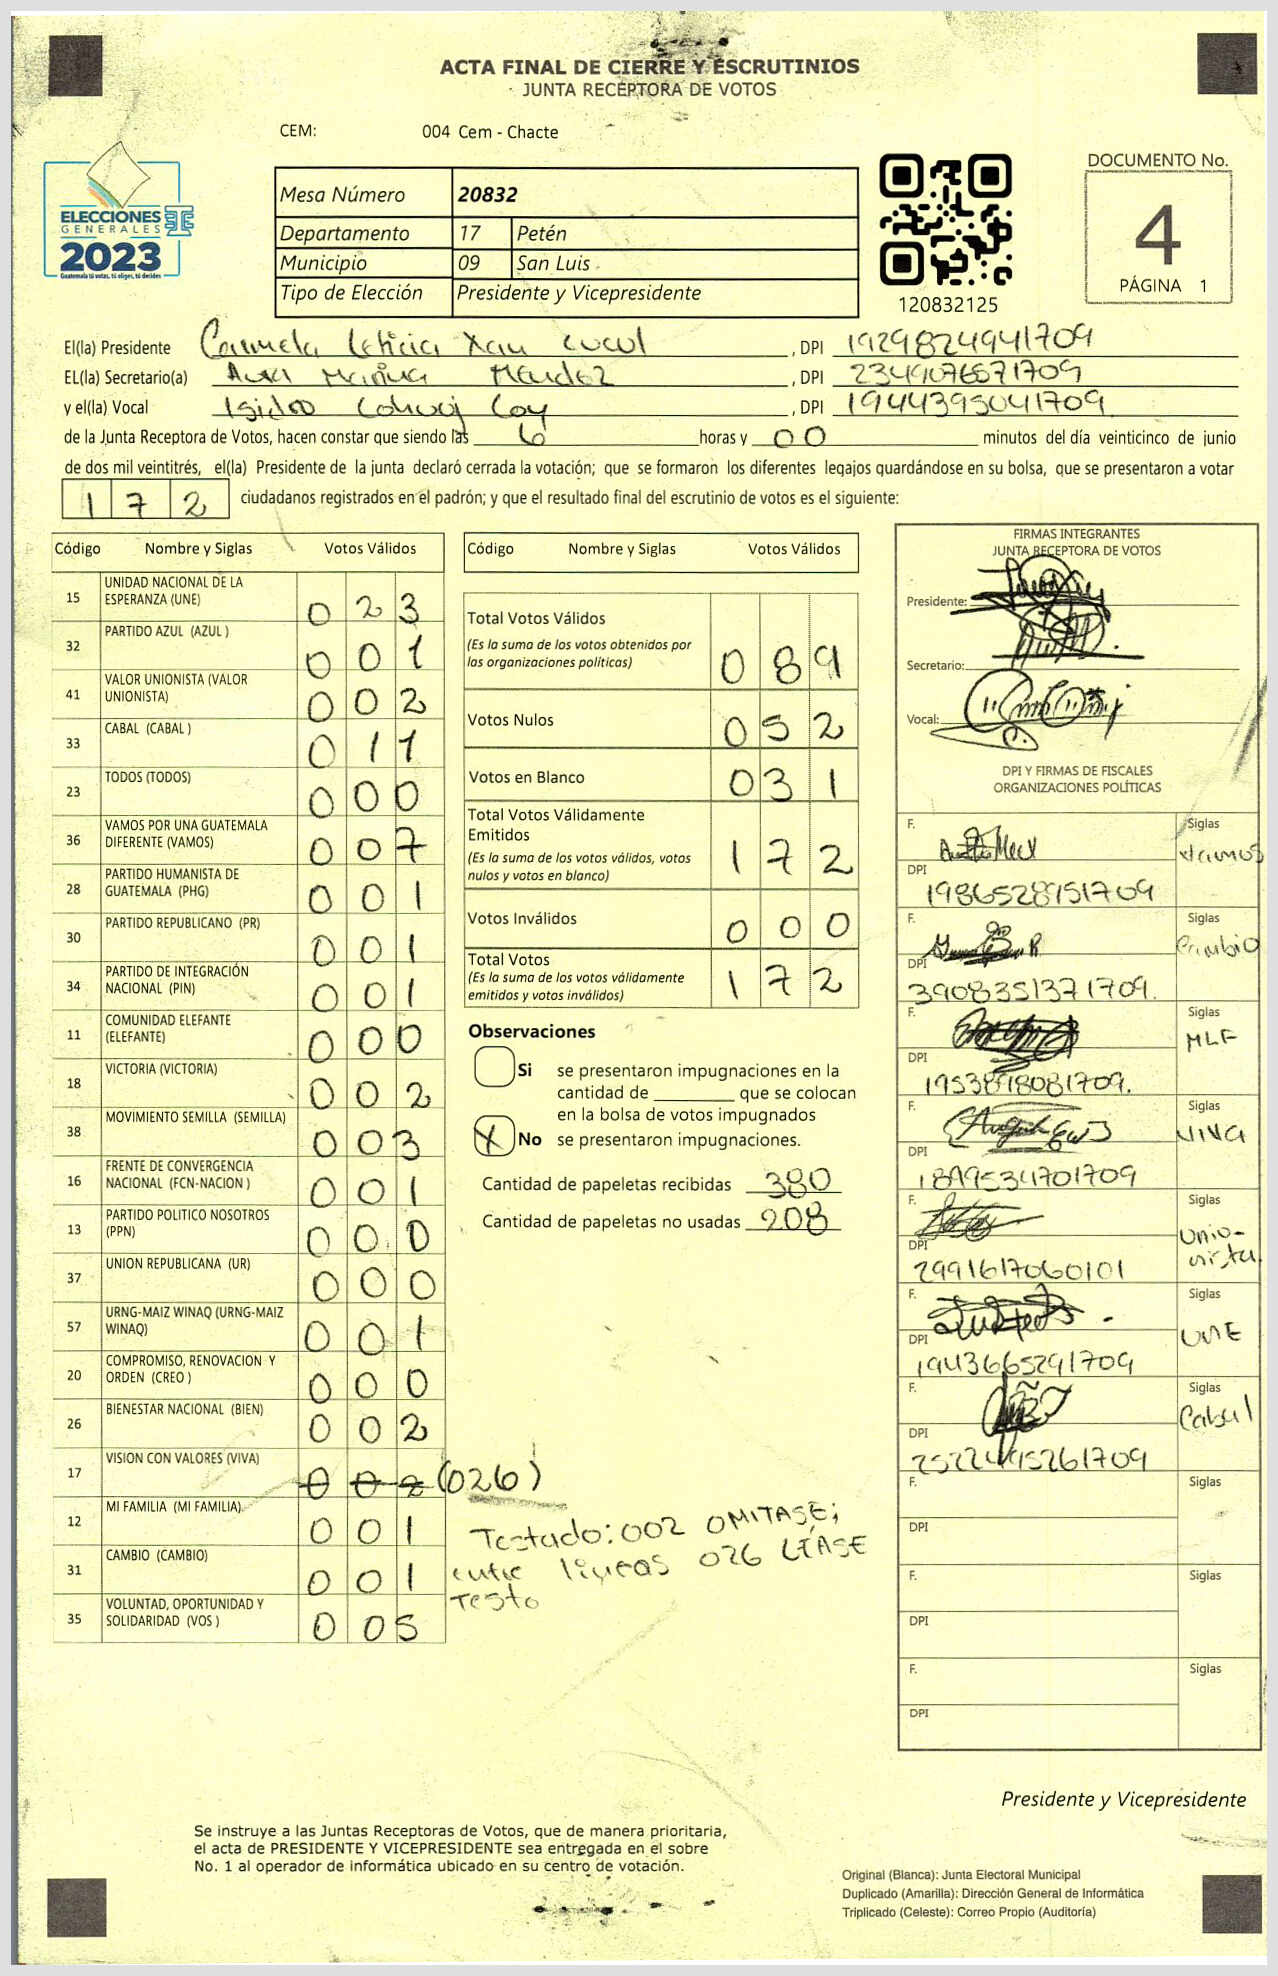 ACTA FINAL DE CIERRE Y ESCRUTINIOS
JUNTA RECEPTORA DE VOTOS
CEM: 004 Cem - Chacte
ELECCIONES
GENERALES
2023
Guatemala tú votas, tú eliges, tú decides
Mesa Número 20832
Departamento 17 Petén
Municipio 09 San Luis
Tipo de Elección Presidente y Vicepresidente
120832125
DOCUMENTO No.
4
PÁGINA 1
El(la) Presidente Carmela Leticia Xau cucul, DPI 1929824941709
EL(la) Secretario(a) Aura Marina Mendez, DPI 2349076571709
y el(la) Vocal Isidro Cohuoj Coy, DPI 1944395041709
de la Junta Receptora de Votos, hacen constar que siendo las 6 horas y 00 minutos del día veinticinco de junio
de dos mil veintitrés, el(la) Presidente de la junta declaró cerrada la votación; que se formaron los diferentes legajos guardándose en su bolsa, que se presentaron a votar
172 ciudadanos registrados en el padrón; y que el resultado final del escrutinio de votos es el siguiente:
Código Nombre y Siglas Votos Válidos
15 UNIDAD NACIONAL DE LA ESPERANZA (UNE) 023
32 PARTIDO AZUL (AZUL ) 001
41 VALOR UNIONISTA (VALOR UNIONISTA) 002
33 CABAL (CABAL ) 011
23 TODOS (TODOS) 000
36 VAMOS POR UNA GUATEMALA DIFERENTE (VAMOS) 007
28 PARTIDO HUMANISTA DE GUATEMALA (PHG) 001
30 PARTIDO REPUBLICANO (PR) 001
34 PARTIDO DE INTEGRACIÓN NACIONAL (PIN) 001
11 COMUNIDAD ELEFANTE (ELEFANTE) 000
18 VICTORIA (VICTORIA) 002
38 MOVIMIENTO SEMILLA (SEMILLA) 003
16 FRENTE DE CONVERGENCIA NACIONAL (FCN-NACION ) 001
13 PARTIDO POLITICO NOSOTROS (PPN) 000
37 UNION REPUBLICANA (UR) 000
57 URNG-MAIZ WINAQ (URNG-MAIZ WINAQ) 001
20 COMPROMISO, RENOVACION Y ORDEN (CREO ) 000
26 BIENESTAR NACIONAL (BIEN) 002
17 VISION CON VALORES (VIVA) 002 (026)
12 MI FAMILIA (MI FAMILIA) 001
31 CAMBIO (CAMBIO) 001
35 VOLUNTAD, OPORTUNIDAD Y SOLIDARIDAD (VOS ) 005
Testado: 002 OMITASE;
entre lineas 026 LÍASE
Testo
Código Nombre y Siglas Votos Válidos
Total Votos Válidos 089
(Es la suma de los votos obtenidos por
las organizaciones políticas)
Votos Nulos 052
Votos en Blanco 031
Total Votos Válidamente
Emitidos 172
(Es la suma de los votos válidos, votos
nulos y votos en blanco)
Votos Inválidos 000
Total Votos 172
(Es la suma de los votos válidamente
emitidos y votos inválidos)
Observaciones
Si se presentaron impugnaciones en la
cantidad de ________ que se colocan
en la bolsa de votos impugnados
X No se presentaron impugnaciones.
Cantidad de papeletas recibidas 380
Cantidad de papeletas no usadas 208
FIRMAS INTEGRANTES
JUNTA RECEPTORA DE VOTOS
Presidente:
Secretario:
Vocal:
DPI Y FIRMAS DE FISCALES
ORGANIZACIONES POLÍTICAS
F. Siglas Vamos
DPI 1986528951709
F. Siglas Cambio
DPI 3908351371709.
F. Siglas MLF
DPI 1953898081709.
F. Siglas VIVA
DPI 1899534701709
F. Siglas Unio-
nista
DPI 2991617060101
F. Siglas UNE
DPI 1943665291709
F. Siglas Cabal
DPI 2522495261709
F. Siglas
DPI
F. Siglas
DPI
F. Siglas
DPI
Presidente y Vicepresidente
Se instruye a las Juntas Receptoras de Votos, que de manera prioritaria,
el acta de PRESIDENTE Y VICEPRESIDENTE sea entregada en el sobre
No. 1 al operador de informática ubicado en su centro de votación.
Original (Blanca): Junta Electoral Municipal
Duplicado (Amarilla): Dirección General de Informática
Triplicado (Celeste): Correo Propio (Auditoría)